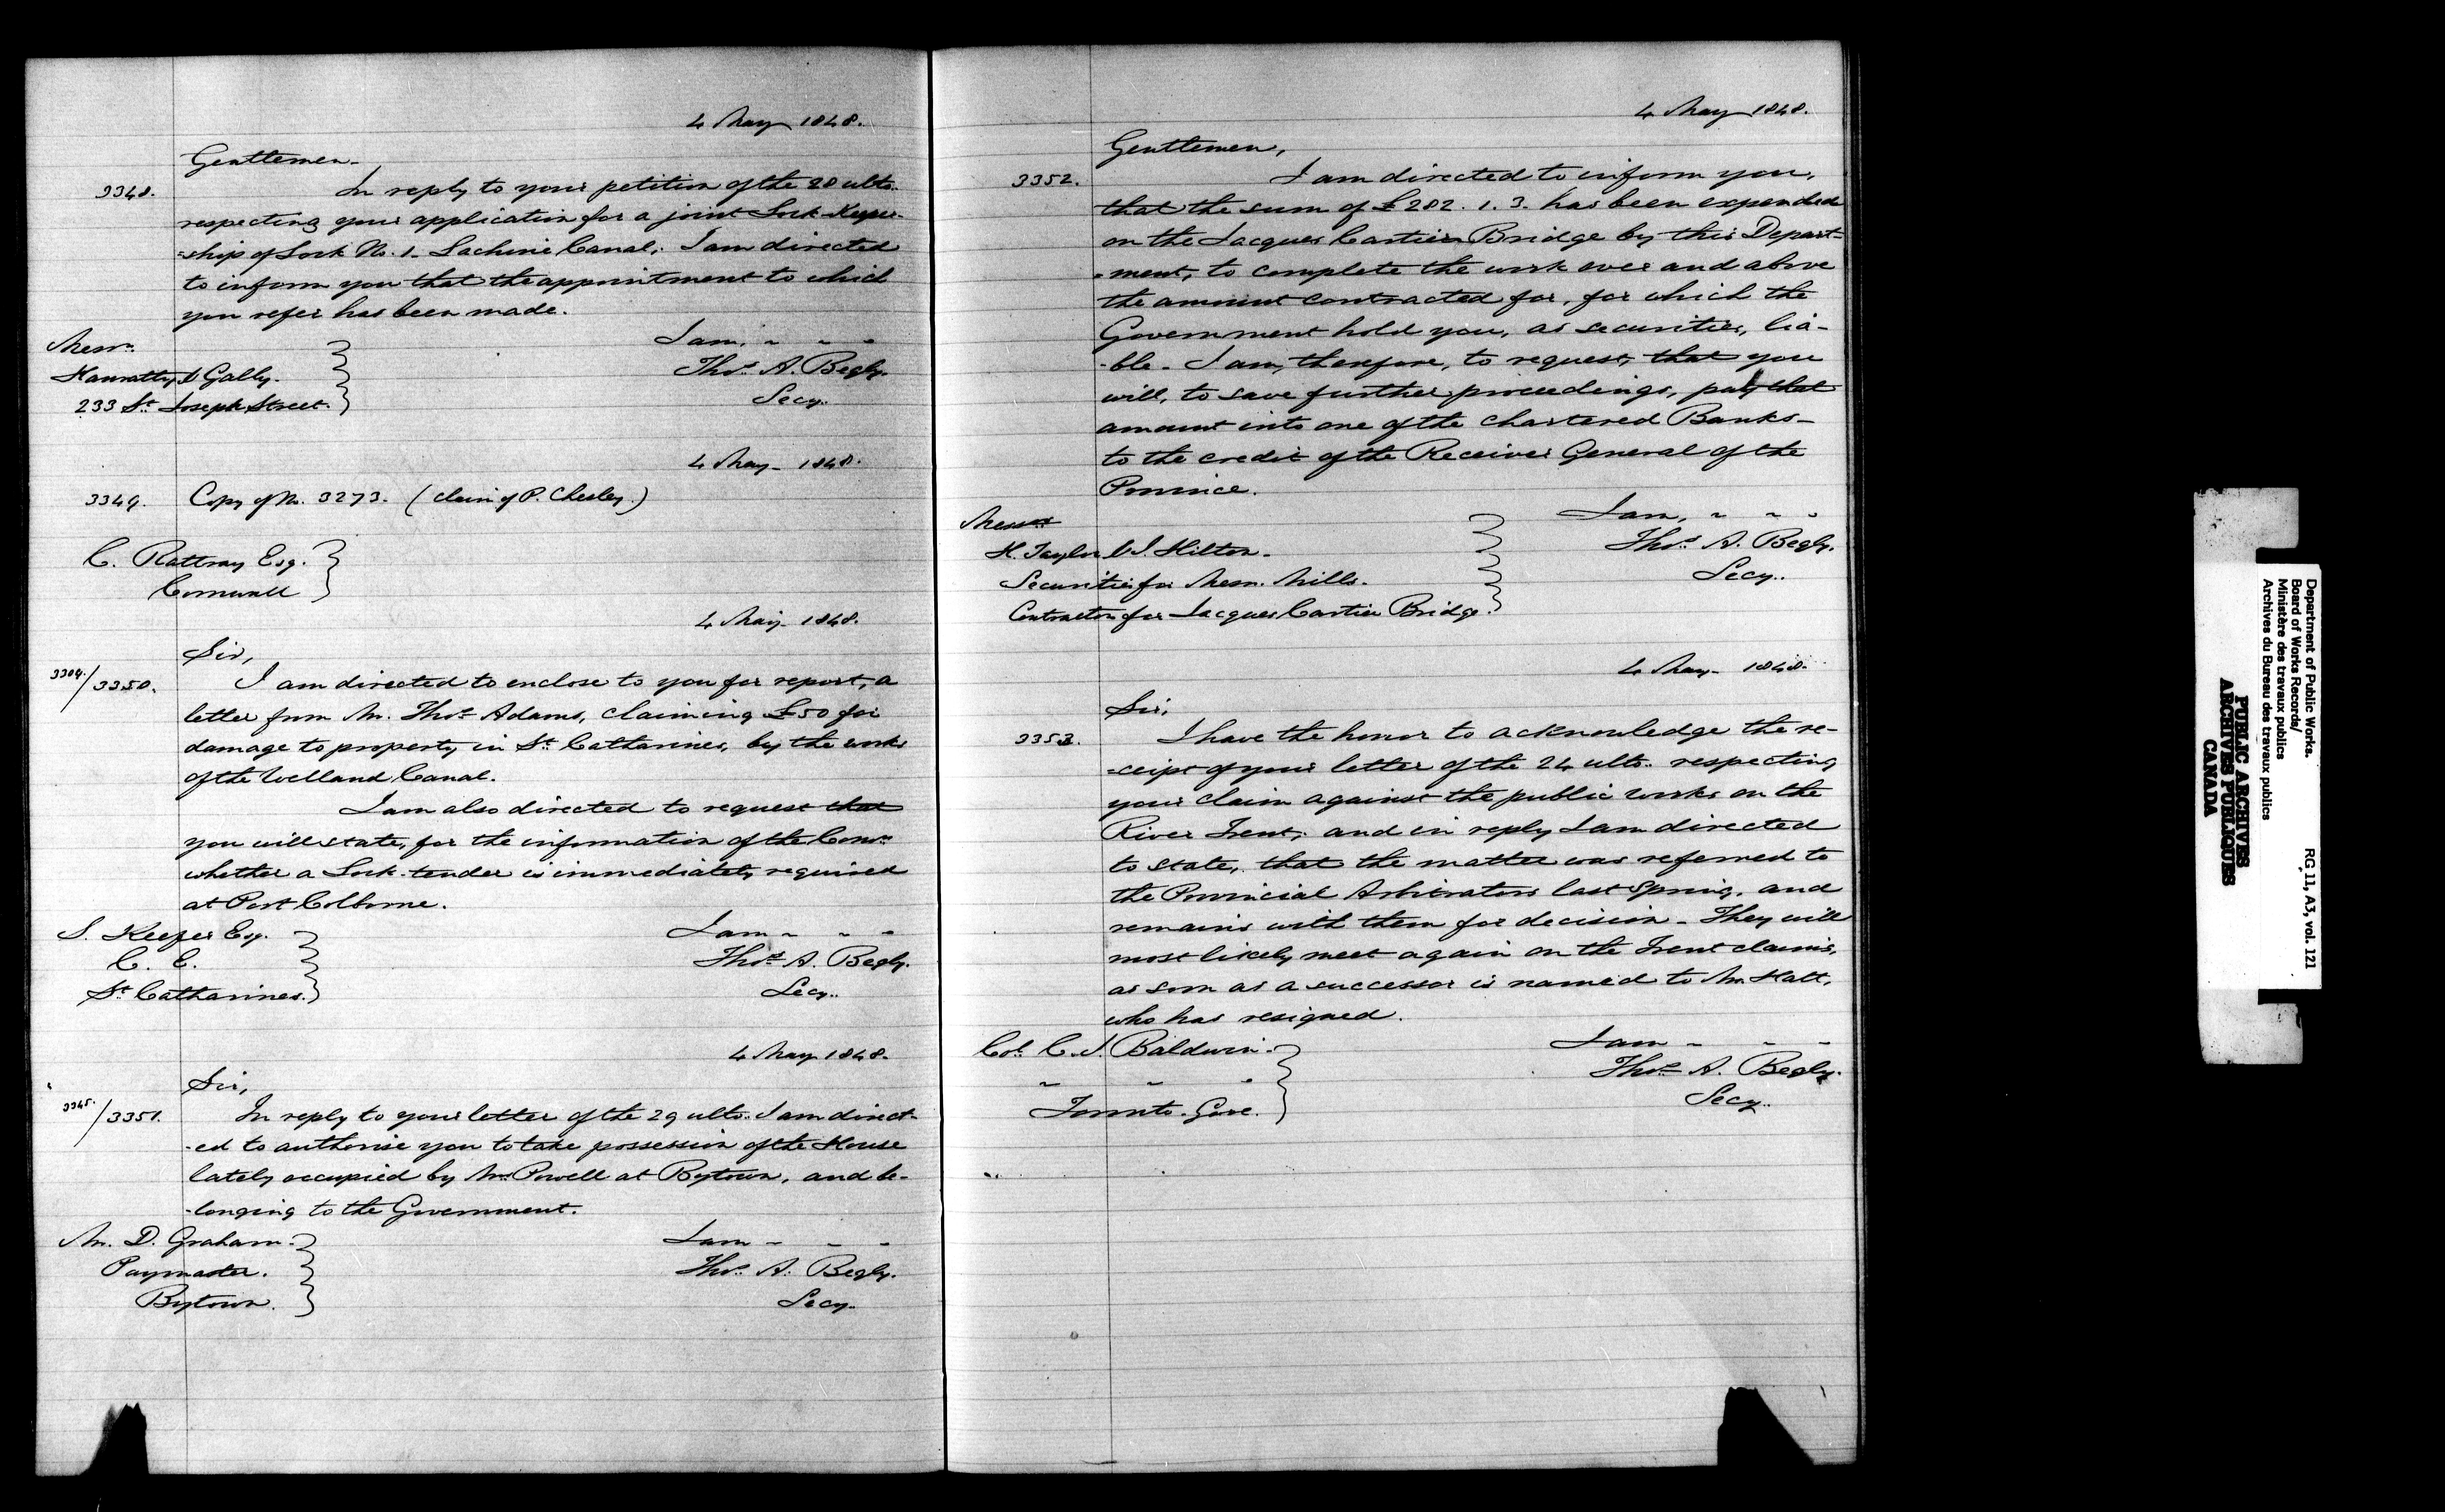 4 May 1848.
Gentlemen.
3348. In reply to your petition of the 28 ulto.
respecting your application for a joint Lock-Keeper-
-ship of Lock No. 1. Lachine Canal; I am directed
to inform you that the appointment to which
you refer has been made.
Messrs. I am, " " "
Hanratty & Gally. Thos. A. Begly.
233 St. Joseph Street. Secy.
4 May - 1848.
3349. Copy of No. 3273. (claim of P. Chesley.)
C. Rattray Esq.
Cornwall
4 May - 1848.
Sir,
3304./3350. I am directed to enclose to you for report, a
letter from Mr. Thos. Adams, claiming £50 for
damage to property in St. Catharines, by the works
of the Welland Canal.
I am also directed to request that
you will state, for the information of the Comrs.
whether a Lock-tender is immediately required
at Port Colborne.
S. Keefer Esq. I am " " "
C. E. Thos. A. Begly.
St. Catharines. Secy.
4 May 1848.
Sir,
3345./3351. In reply to your letter of the 29 ulto. I am direct-
-ed to authorise you to take possession of the House
lately occupied by Mr. Powell at Bytown, and be-
-longing to the Government.
Mr. D. Graham. I am " " "
Paymaster. Thos. A. Begly.
Bytown. Secy.
4 May 1848.
Gentlemen,
3352. I am directed to inform you,
that the sum of £282. 1. 3. has been expended
on the Jacques Cartier Bridge by this Depart-
-ment, to complete the work over and above
the amount contracted for, for which the
Government hold you, as securities, lia-
-ble. I am, therefore, to request, that you
will, to save further proceedings, pay that
amount into one of the chartered Banks -
to the credit of the Receiver General of the
Province.
Messrs I am, " " "
H. Taylor & J. Hilton. Thos. A. Begly.
Securities for Messrs. Mills. Secy.
Contractors for Jacques Cartier Bridge.
4 May - 1848.
Sir,
3353. I have the honor to acknowledge the re-
-ceipt of your letter of the 24 ulto. respecting
your claim against the public works on the
River Trent; and in reply I am directed
to state, that the matter was referred to
the Provincial Arbitrators last Spring, and
remains with them for decision - They will
most likely meet again on the Trent claims,
as soon as a successor is named to Mr. Hatt,
who has resigned.
Col. C. J. Baldwin. I am " " "
" " " Thos. A. Begly.
Toronto. Secy.
Department of Public Works.
Board of Works Records/
Ministère des travaux publics
Archives du Bureau des travaux publics
RG 11, A3, vol. 121
PUBLIC ARCHIVES
ARCHIVES PUBLIQUES
CANADA